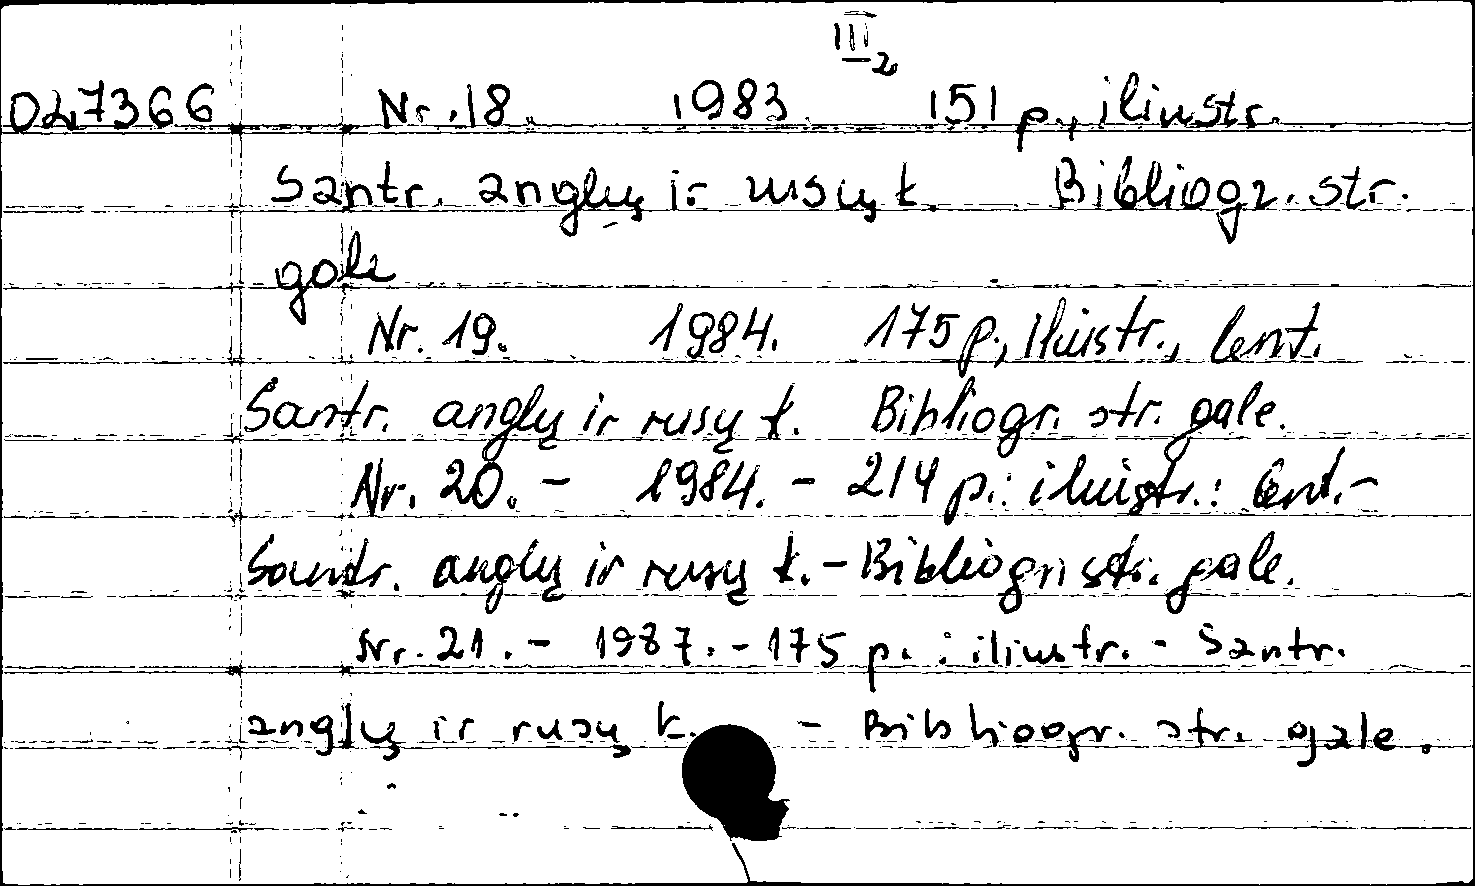 III2
047366 Nr. 18. 1983 151 p., iliustr.
Santr. anglų ir rusų k. Bibliogr. str.
gale
Nr. 19. 1984. 175 p., iliustr., lent.
Santr. anglų ir rusų k. Bibliogr. str. gale.
Nr. 20. - 1984. - 214 p.: iliustr.: lent. -
Santr. anglų ir rusų k. - Bibliogr. str. gale.
Nr. 21. - 1987. - 175 p. : iliustr. - Santr.
anglų ir rusų k. - Bibliogr. str. gale.